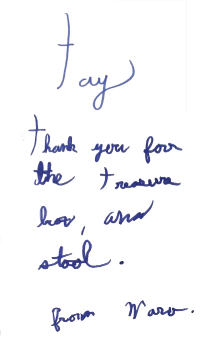 Tay
Thank you for
the treasure
box, and
stool.
from Ward.